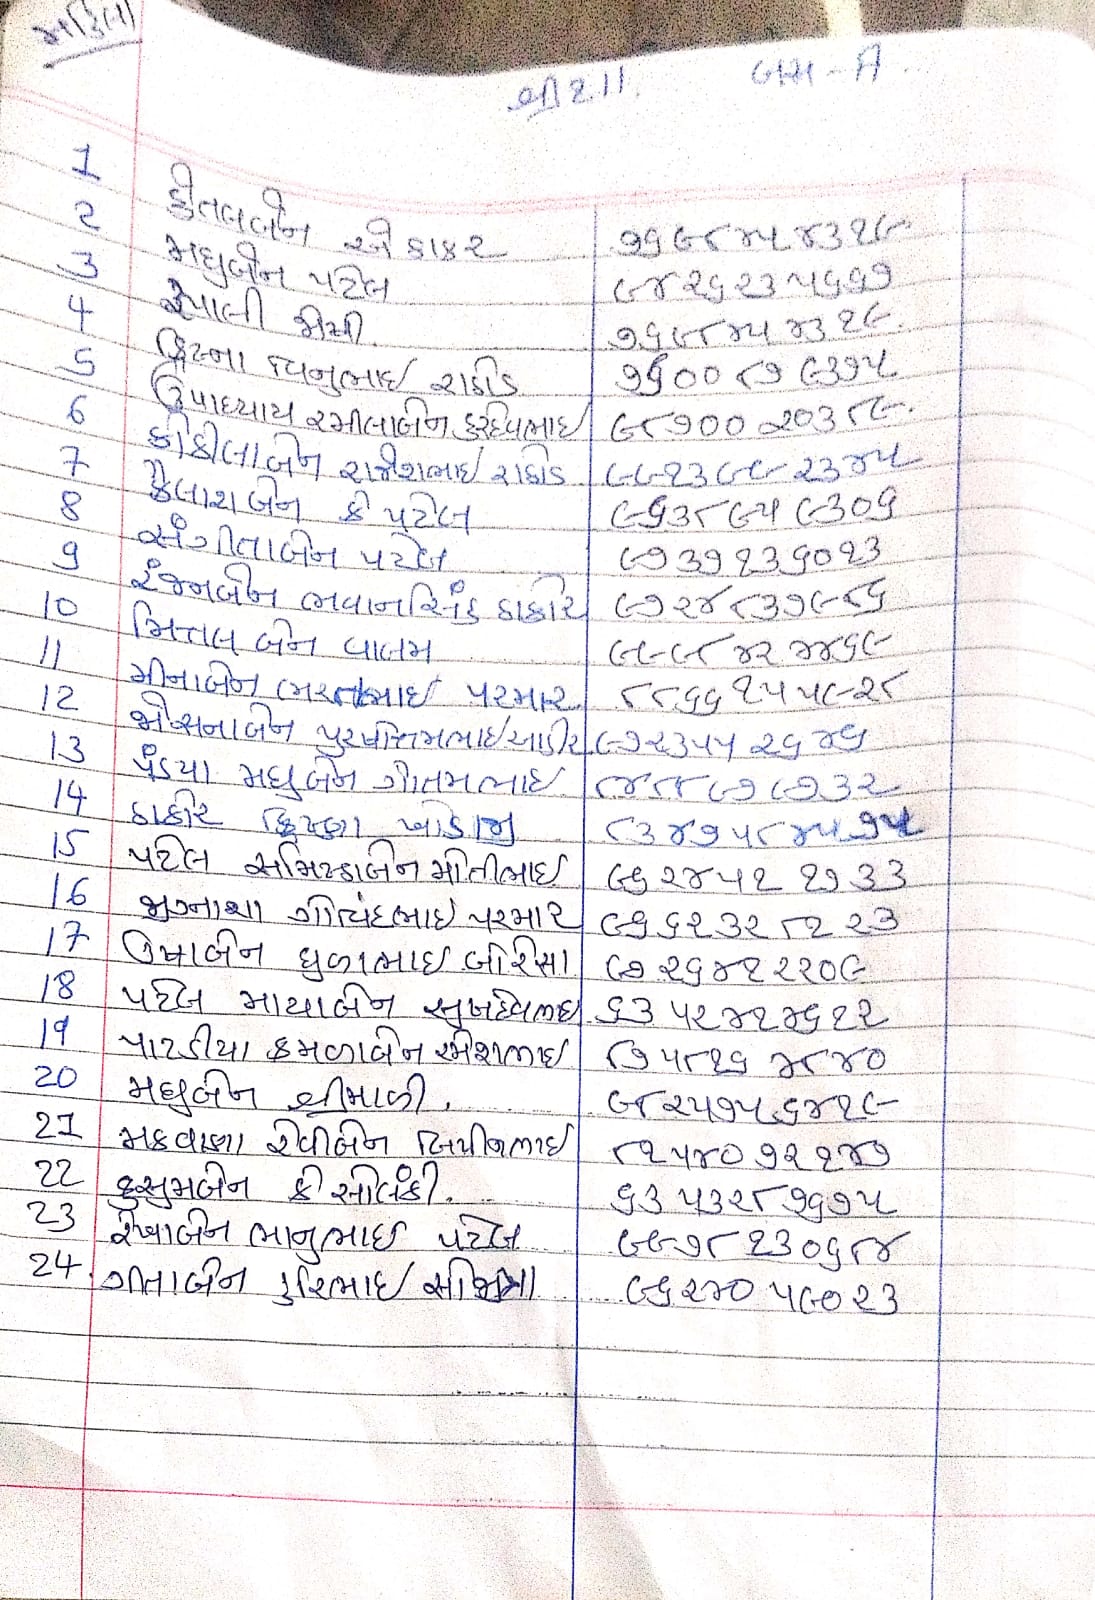 મહિલા
બસ-A
1 શીતલબેન એ ઠાકર ૭૬૯૮૫૪૩૨૯
2 મધુબેન પટેલ ૯૪૨૬૨૩૫૬૬૭
3 રૂપાલી જોષી ૭૬૯૮૫૪૩૨૯
4 ક્રિષ્ના વિનુભાઇ રાઠોડ ૭૬૦૦૮૭૯૩૭૫
5 ઉપાધ્યાય રમીલાબેન હરદેવભાઇ ૯૮૭૦૦૨૦૩૮૯
6 કોકીલાબેન રાજેશભાઇ રાઠોડ ૯૯૨૩૯૯૨૩૪૫
7 કૈલાશબેન કે પટેલ ૯૬૩૮૯૫૯૩૦૬
8 સંગીતાબેન પટેલ ૯૭૩૭૨૩૬૦૨૩
9 રંજનબેન ભવાનસિંહ ઠાકોર ૯૭૨૪૮૩૭૯૮૬
10 મિત્તલ બેન વાલમ ૯૯૯૮૪૨૪૪૬૯
11 મીનાબેન ભરતભાઇ પરમાર ૮૮૬૬૨૫૫૯૨૮
12 જોષનાબેન પુરષોત્તમભાઇ ૯૭૨૩૫૫૨૬૪૬
13 પંડયા મધુબેન ગૌતમભાઇ ૮૪૮૮૯૭૯૭૩૨
14 ઠાકોર ક્રિષ્ણા ખોડાજી ૮૩૪૭૫૮૪૫૭૫
15 પટેલ સમિષ્ઠાબેન મોતીભાઇ ૯૬૨૪૫૨૨૭૩૩
16 જીગ્નાશા ગોવિંદભાઇ પરમાર ૯૬૬૨૩૨૮૨૨૩
17 ઉષાબેન ધુળાભાઇ બોરિસા ૯૭૨૬૪૨૨૨૦૯
18 પટેલ માયાબેન સુખદેવભાઇ ૬૩૫૨૪૨૪૬૨૨
19 પારડીયા કમળાબેન રમેશભાઇ ૮૭૫૮૨૬૪૮૪૦
20 મધુબેન શ્રીમાળી. ૯૮૨૫૭૫૬૪૨૯
21 મકવાણા દેવીબેન બિપીનભાઇ ૮૨૫૪૦૭૨૨૪૭
22 કુસુમબેન કે સોલંકી. ૬૩૫૩૨૮૭૬૭૫
23 રેખાબેન ભાનુભાઇ પટેલ ૯૯૭૮૨૩૦૬૮૪
24. ગીતાબેન હરિભાઇ ૯૬૨૪૦૫૯૦૨૩